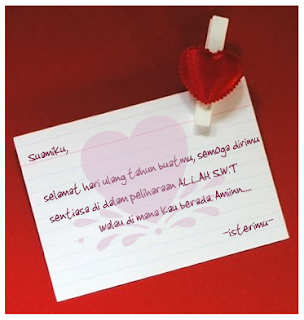 Suamiku,
selamat hari ulang tahun buatmu, semoga dirimu
sentiasa di dalam peliharaan ALLAH S.W.T
walau di mana kau berada. Amiinn....
~isterimu~